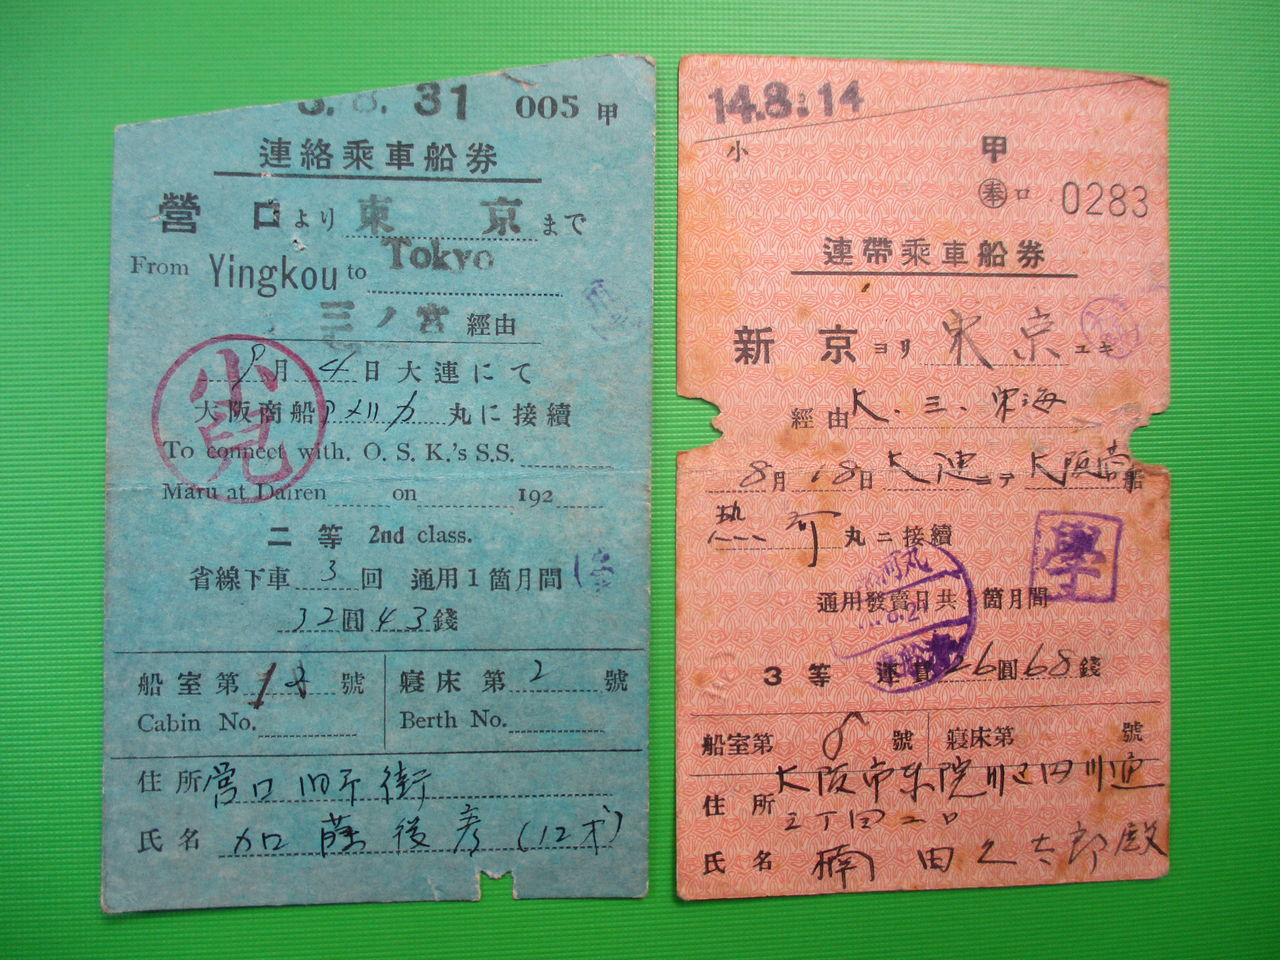 8. 31 005 甲
連絡乘車船券
營口より東京まで
From Yingkou to Tokyo
三ノ宮 經由
9月4日大連にて
大阪商船アメリカ丸に接續
To connect with. O. S. K.'s S.S.
Maru at Dairen on 192
小兒
二等 2nd class.
省線下車3回 通用1箇月間
32圓43錢
船室第 號 寢床第2號
Cabin No. Berth No.
住所 營口旧市街
氏名 加藤俊彦(12才)
14.8.14
小 甲
奉 ロ 0283
連帶乘車船券
新京ヨリ東京ユキ
經由大、三、東海
8月18日大連ニテ大阪商船
熱河丸ニ接續
學
通用發賣日共1箇月間
3等 運賃26圓68錢
船室第 號 寢床第 號
住所 大阪市東
氏名 楠田久太郎殿